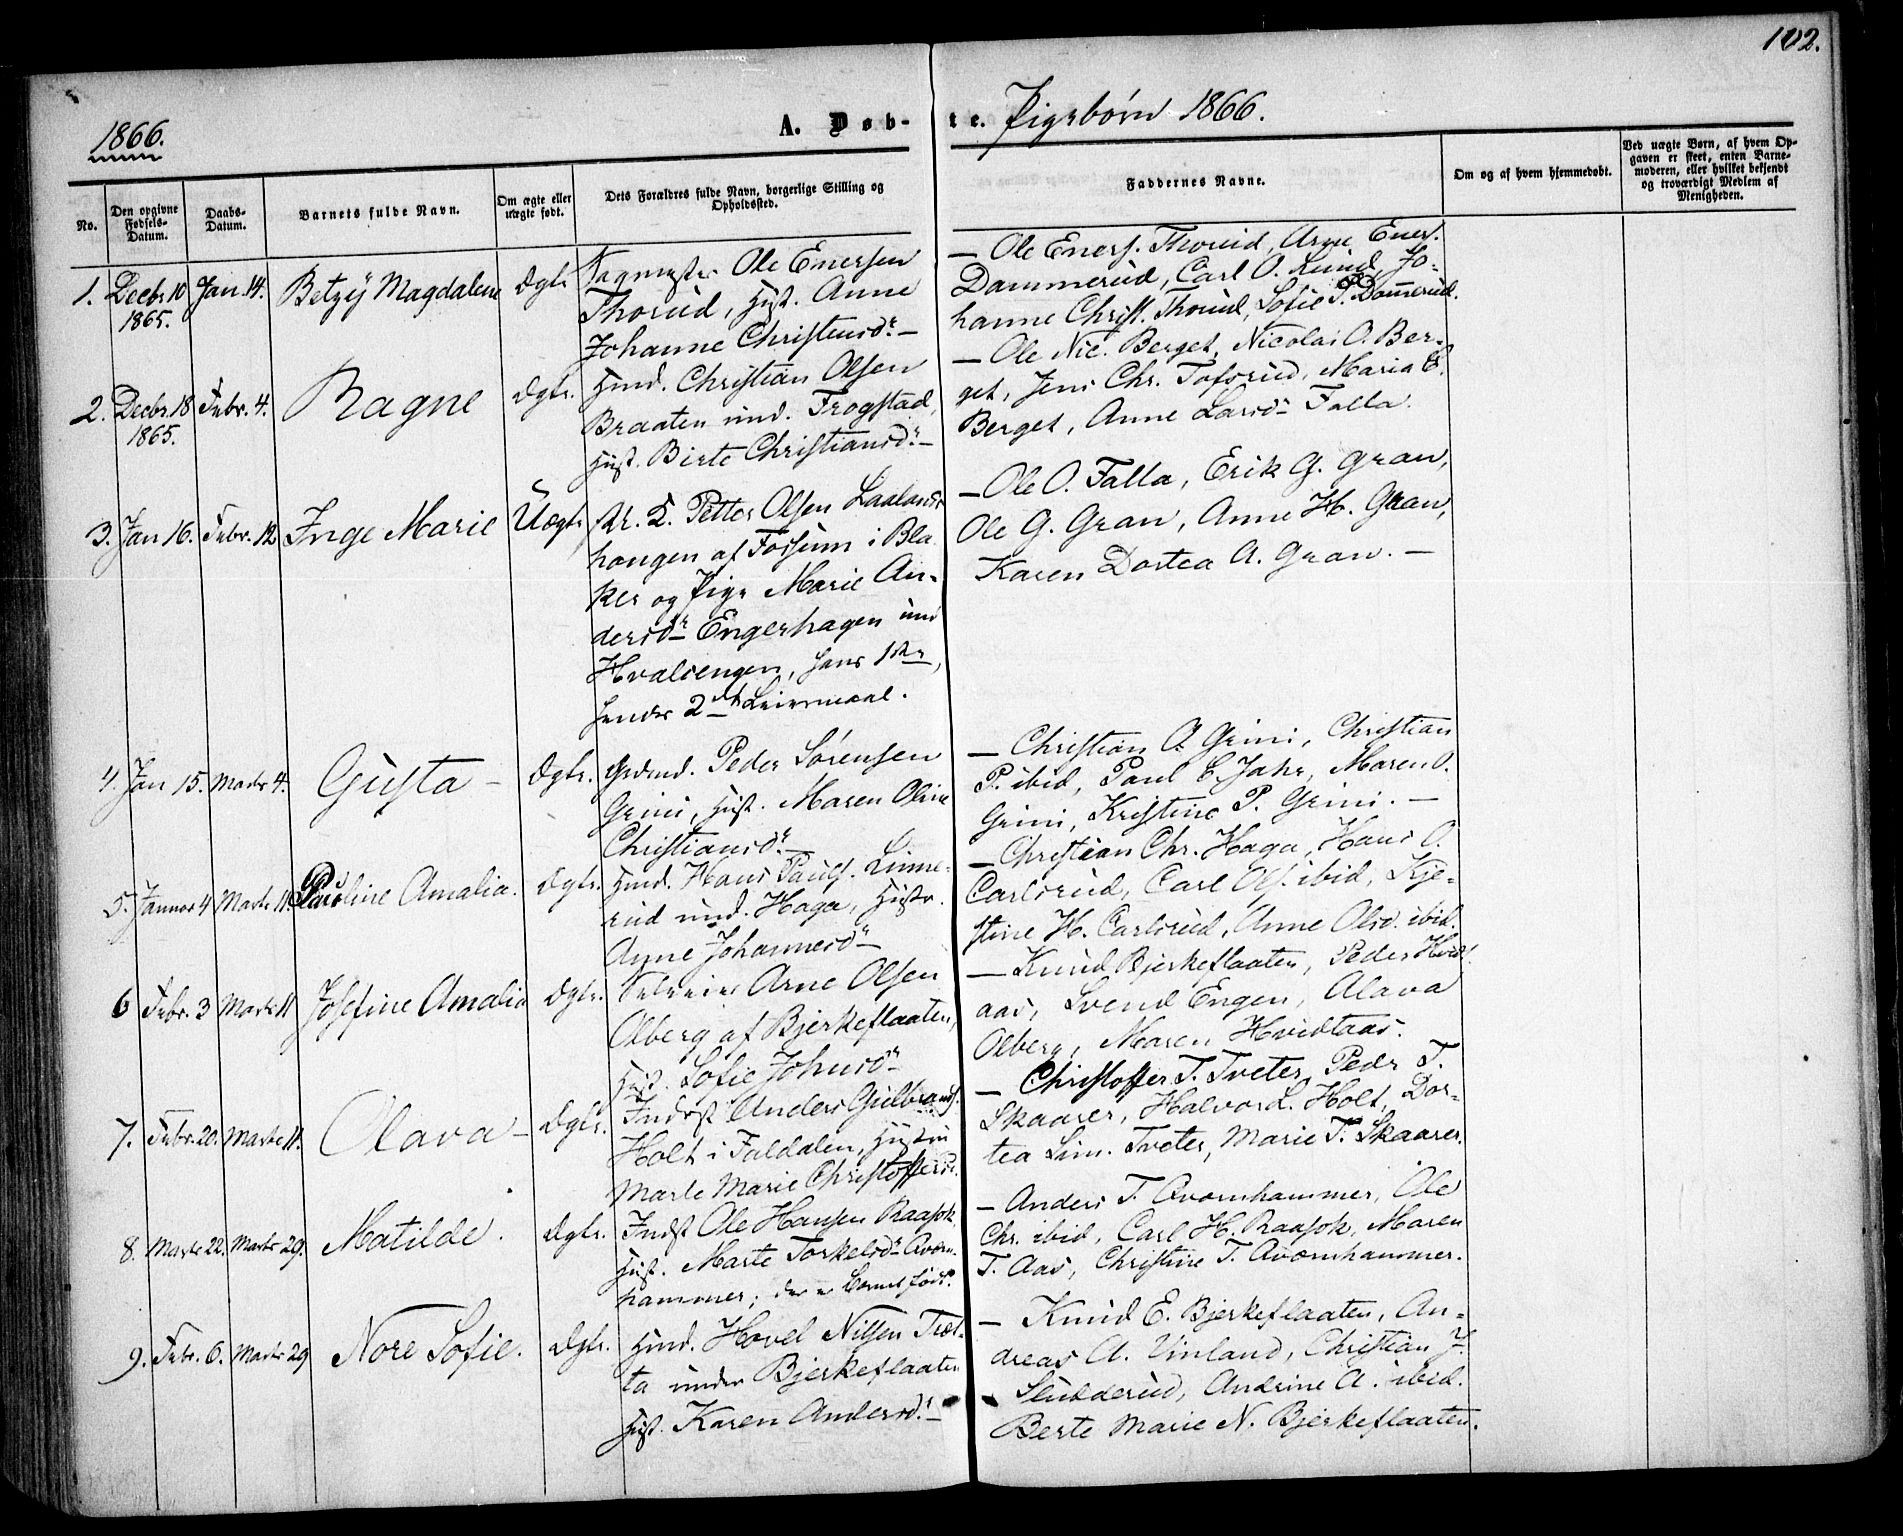 102.
1866.
A. Døb-
te. Pigebørn 1866.
No.
Den opgivne Fødsels-Datum.
Daabs-Datum.
Barnets fulde Navn.
Om ægte eller uægte født.
Dets Forældres fulde Navn, borgerlige Stilling og Opholdssted.
Faddernes Navne.
Om og af hvem hjemmedøbt.
Ved uægte Børn, af hvem Opgaven er skeet, enten Barnemoderen, eller hvilket bekjendt og troværdigt Medlem af Menigheden.
1. Decbr. 10 1865. Jan. 14. Betzÿ Magdalene Ægte
Ole Enersen
Thorud, Hust. Anne
Johanne Christensd. —
— Ole Eners. Thorud, Arne Eners.
Dammerud, Carl O. Lund, Jo-
hanne Christ. Thorud, Sofie P. Dammerud.
2. Decbr. 18 1865. Febr. 4. Ragne Ægte.
Husmd. Christian Olsen
Braaten und. Frogstad,
Hust. Birte Christiansd. —
— Ole Nic. Berget, Nicolai O. Ber-
get, Jens Chr. Tofsrud, Maria E.
Berget, Anne Larsd. Falla.
3. Jan 16. Febr. 12 Inge Marie Uægte
Petter Olsen Laaland
hongen af Fossum i Bla
ker og Pige Marie An-
dersd. Engerhagen und
Hvalsengen, hans 1ste,
hendes 2det Leiermaal.
— Ole O. Falla, Erik G. Gran,
Ole G. Gran, Anne H. Gran,
Karen Dortea A. Gran. —
4. Jan 15. Marts 4. Gusta — Ægte.
Grdmd. Peder Sørensen
Grini, Hust. Maren Oline
Christiansd. —
— Christian A. Grini, Christian
P. ibid, Paul C. Jahr, Maren O.
Grini, Kristine P. Grini. —
5. Januar 4 Marts 11. Pauline Amalia. Ægte.
Husmd. Hans Pauls. Linne-
rud und. Haga, Hustr.
Anne Johannesd.
— Christian Chr. Haga, Hans O.
Carlsrud, Carl Ols. ibid, Kje-
stine H. Carlsrud, Anne Olsd. ibid.
6 Febr. 3 Marts 11 Josefine Amalia Ægte.
Arne Olsen
Olberg af Bjerkeflaaten,
Hust. Sofie Johnsd.
— Knud Bjerkeflaaten, Peder Hvidt
aas, Svend Engen, Olava
Olberg, Maren Hvidtaas.
7. Febr. 20. Marts 11. Olava — Ægte.
Inderst Anders Gulbrands.
Holt i Faldalen, Hustru
Marte Marie Christoffersd.
— Christoffer T. Tveter, Peder T.
Skaarer, Halvor L. Holt, Dor-
tea Sim. Tveter, Marie T. Skaarer.
8. Marts 22. Marts 29. Matilde. Ægte.
Inderst Ole Hansen Raasok
Hust. Marte Torkelsd. Avorn-
hammer; der er Barnet født.
— Anders T. Avornhammer, Ole
Chr. ibid, Carl H. Raasok, Maren
T. Aas, Christine T. Avornhammer.
9. Febr. 6. Marts 29 Nore Sofie. Ægte.
Husmd. Hovel Nilsen Træt-
ta under Bjerkeflaaten
Hust. Karen Andersd. —
— Knud E. Bjerkeflaaten, An-
dreas A. Vinland, Christian J.
Slubberud, Andrine A. ibid.
Berte Marie N. Bjerkeflaaten.